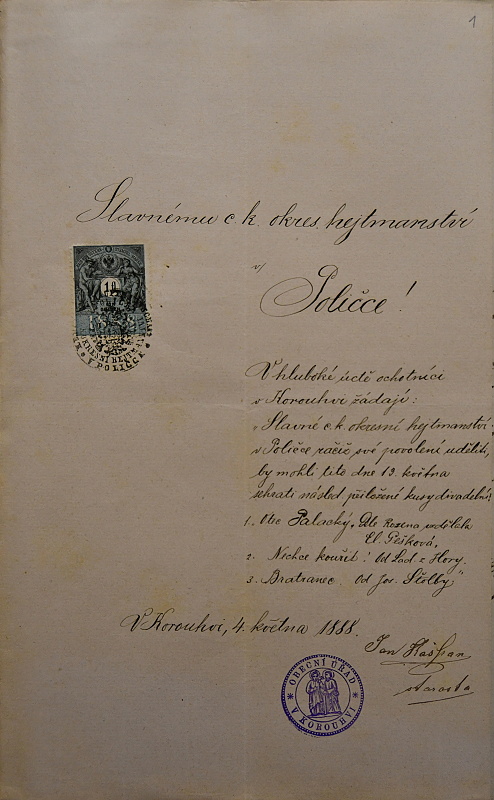 1
Slavnému c. k. okres. hejtmanství
v
Poličce!
V hluboké úctě ochotníci
v Korouhvi žádají:
"Slavné c. k. okresní hejtmanství
v Poličce račiž své povolení uděliti,
by mohli tito dne 13. května
sehrati násled. přiložené kusy divadelní:
1. Otec Palacký, Dle Rosena vzdělala
El. Pešková,
2. Nechce kouřit! Od Lad. z Hory.
3. Bratranec. Od Jos. Štolby"
V Korouhvi, 4. května 1888.
Jan
starosta
OBECNÍ ÚŘAD
V KOROUHVI
V POLIČCE